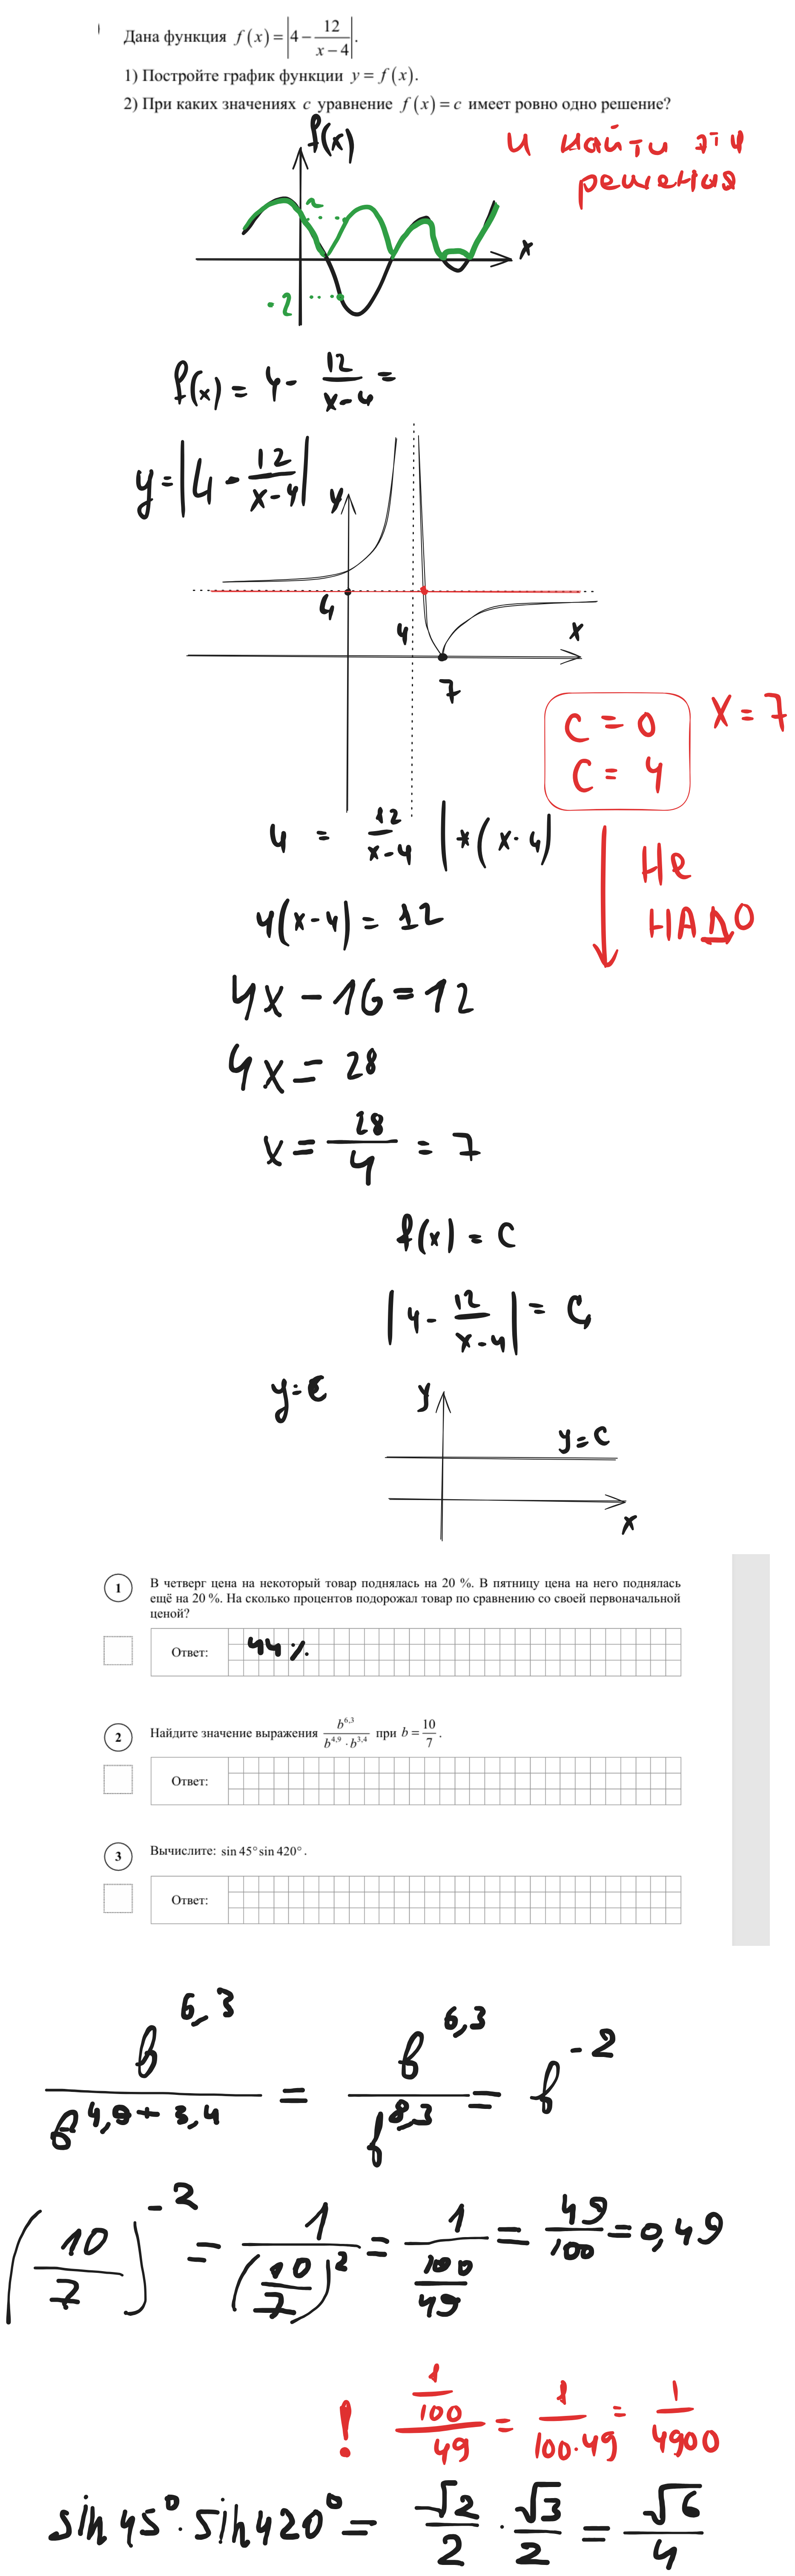 Дана функция f(x) = |4 − 12/(x − 4)|.
1) Постройте график функции y = f(x).
2) При каких значениях c уравнение f(x) = c имеет ровно одно решение?
и найти эти
решения
f(x)
2
x
-2
f(x) = 4 - 12/(x-4) =
y = |4 - 12/(x-4)|
y
4
4
x
7
c = 0
x = 7
c = 4
4 = 12/(x-4) | *(x-4)
Не
НАДО
4(x-4) = 12
4x - 16 = 12
4x = 28
x = 28/4 = 7
f(x) = c
|4 - 12/(x-4)| = c
y = c
y
y = c
x
1
В четверг цена на некоторый товар поднялась на 20 %. В пятницу цена на него поднялась
ещё на 20 %. На сколько процентов подорожал товар по сравнению со своей первоначальной
ценой?
Ответ: 44 %
2
Найдите значение выражения b^6,3/(b^4,9 · b^3,4) при b = 10/7.
Ответ:
3
Вычислите: sin 45° sin 420°.
Ответ:
b^6,3/b^(4,9 + 3,4) = b^6,3/b^8,3 = b^-2
(10/7)^-2 = 1/(10/7)^2 = 1/(100/49) = 49/100 = 0,49
! (1/100)/49 = 1/(100·49) = 1/4900
sin 45° · sin 420° = √2/2 · √3/2 = √6/4